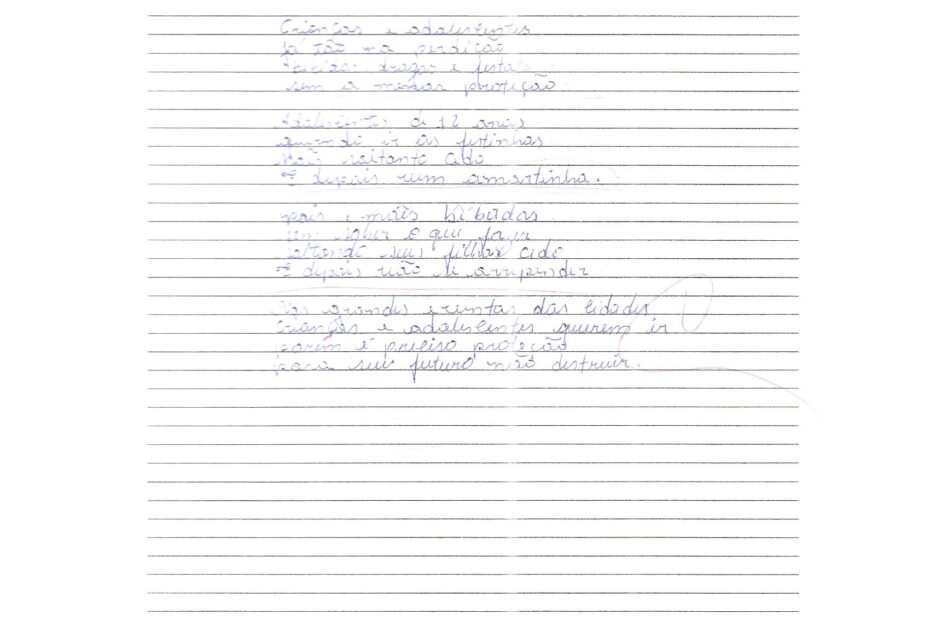 Crianças e adolescentes
Já tão na perdição
Bebidas, drogas e festas
sem a menor proteção
Adolescentes de 12 anos
querendo ir as festinhas
Mais voltando cedo
E depois
pais e mães bêbados
sem saber o que fazer
voltando seus filhos cedo
E depois não se arrepender
Nos grandes eventos das cidades
crianças e adolescentes querem ir
porém é preciso proteção
para seu futuro não destruir.